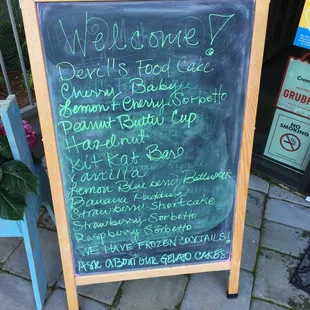 Welcome!
Devil's Food Cake
Cherry Baby
Lemon & Cherry Sorbetto
Peanut Butter Cup
Hazelnut
Kit Kat Bar
Vanilla
Lemon Blueberry Buttermilk
Banana Pudding
Strawberry Shortcake
Strawberry Sorbetto
Raspberry Sorbetto
WE HAVE FROZEN COCKTAILS!
ASK ABOUT OUR GELATO CAKES!
GRUBH
NO
SMOKING